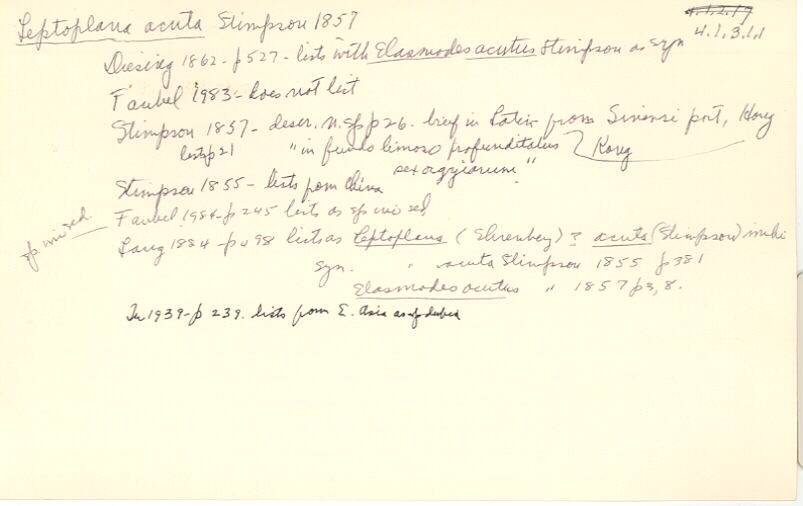 Leptoplana acuta Stimpson 1857
4.1.2.17
4.1.3.1.1
Diesing 1862 - p 527 - lists with Elasmodes acutus Stimpson as syn
Faubel 1983 - does not list
Stimpson 1857 - descr. n. sp p 26. brief in Latin from Sinensi port, Hong
lists p 21 "in fundo limoso profunditatus Kong
sex orgyiarum"
Stimpson 1855 - lists from China
Faubel 1984 - p 245 lists as sp inc sed
sp. inc sed.
Lang 1884 - p 498 lists as Leptoplana (Ehrenberg) ? acuta (Stimpson) mihi
syn. " acuta Stimpson 1855 p 381
Elasmodes acutus " 1857 p 3, 8.
In 1939 - p 239. lists from E. Asia as sp dubia